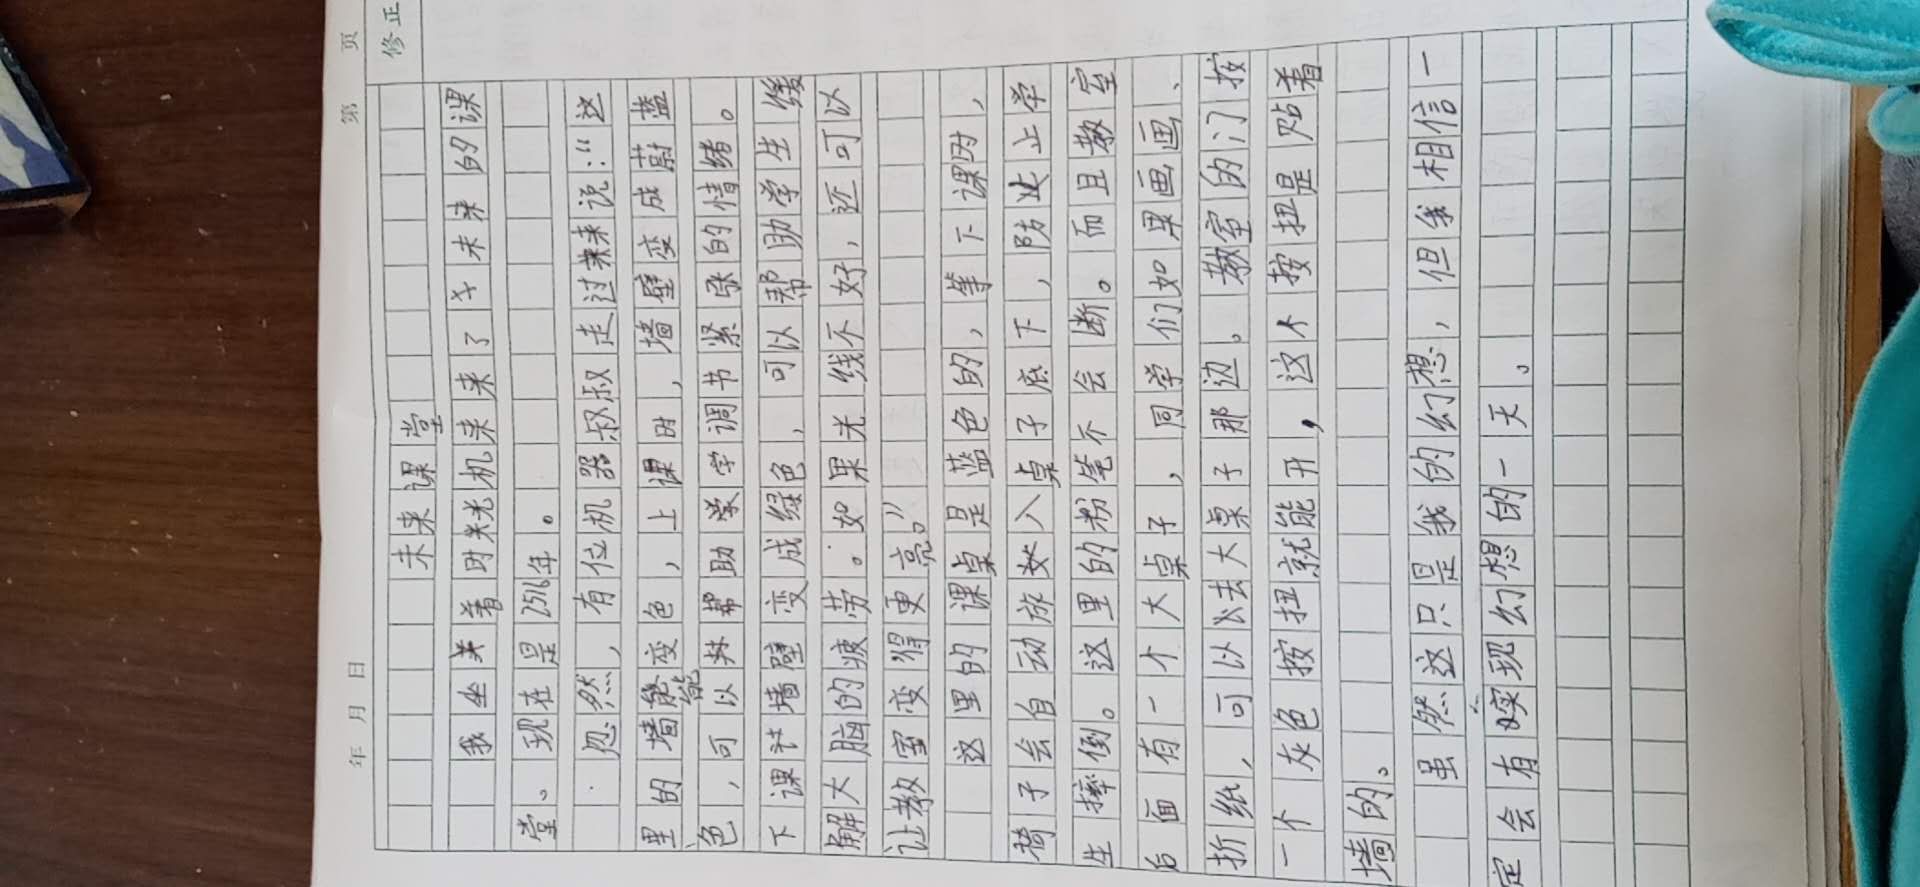 第 页
年 月 日
修正
未来课堂
我坐着时光机来来了未来的课
堂。现在是2516年。
忽然，有位机器叔叔走过来说：“这
里的墙能变色，上课时，墙壁变成蔚蓝
色，可以帮助学调节紧张的情绪。
下课墙壁变成绿色，可以帮助学生缓
解大脑的疲劳。如果光线不好，还可以
让教室变得更亮。”
这里的课桌是蓝色的，等下课时，
椅子会自动放入桌子底下，防止学
生摔倒。这里的粉笔不会断。而且教室
后面有一个大桌子，同学们如果画画、
折纸，可以去大桌子那边。教室的门按
一个灰色按扭就能开，这个按扭是贴着
墙的。
虽然这只是我的幻想，但我相信一
定会有实现幻想的一天。